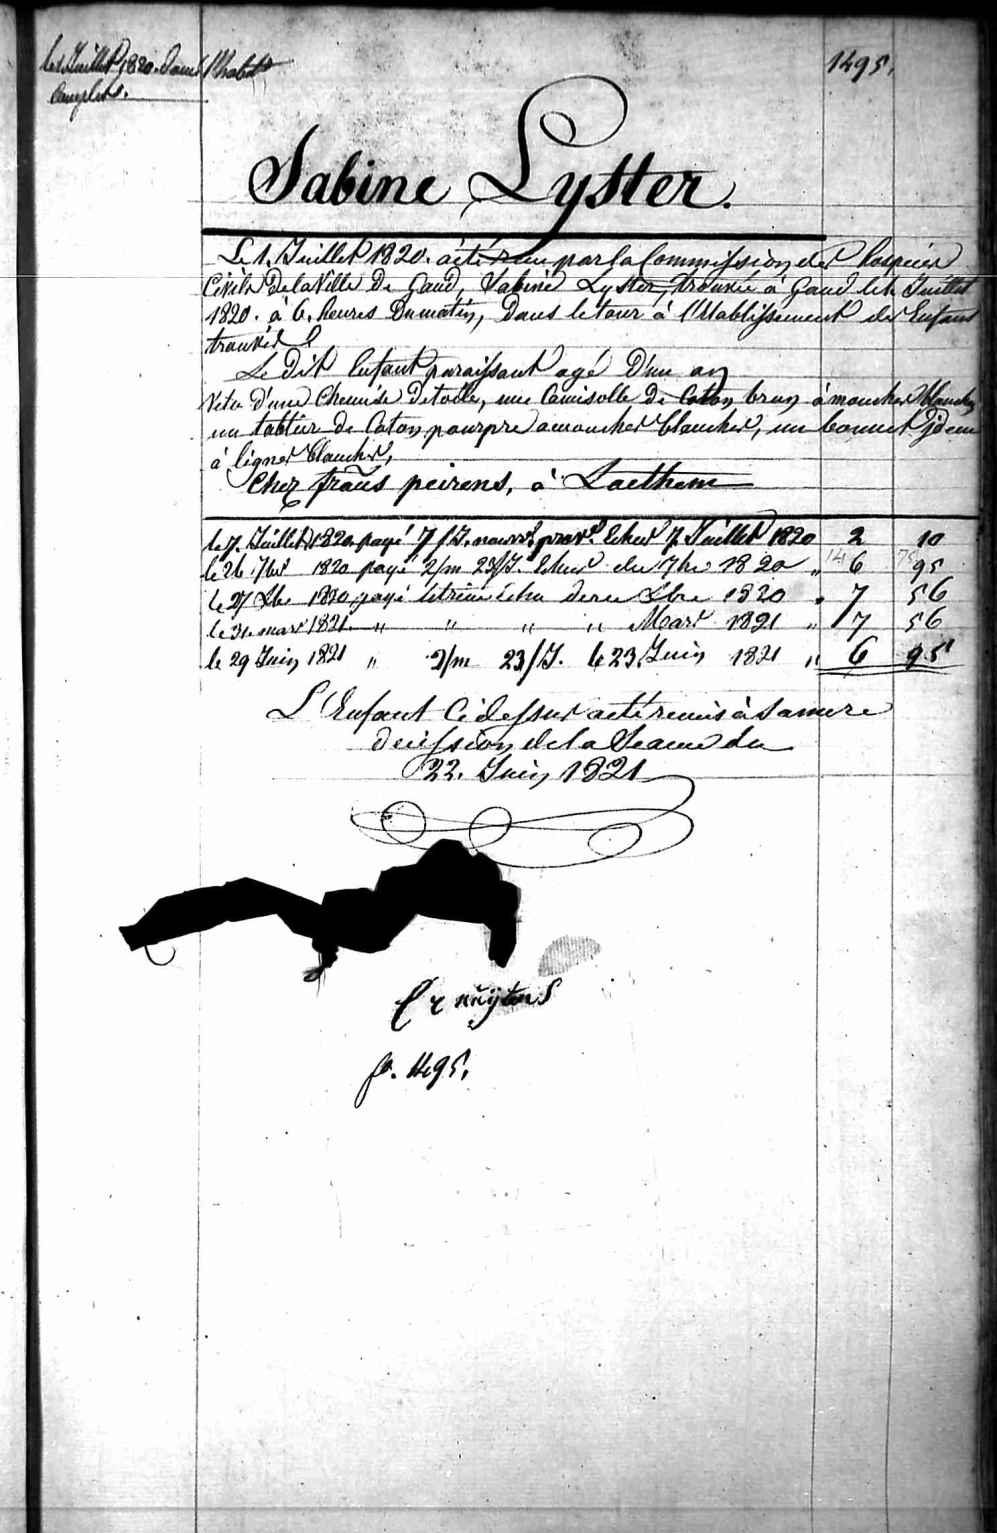 le 1. Juillet 1820. donné l'habit
complet.
1495.
Sabine Lyster.
Le 1. Juillet 1820. a été reçu par la Commission des hospices
Civils de la Ville de Gand, Sabine Lyster, trouvée à Gand le 1. Juillet
1820. à 6. heures Du matin, Dans le tour à l'Etablissement des Enfans
trouvés
Le Dit Enfant paraissant agé D'un an
Vetu d'une Chemise De toile, une Camisolle De Coton brun à mouches blanches
un tablier de Coton pourpre a mouches blanches, un bonnet jdem
à lignes blanches,
Chez frans peirens, à Laethem
le 7. Juillet 1820 payé 7/J. nourre prov. Echus 7. Juillet 1820 2 10
le 26 7bre 1820 payé 2/m 23/J. Echus du 7bre 1820 " 6 95
14 75
le 27 Xbre 1820 payé letrime échu dernr Xbre 1820 " 7 56
le 31 mars 1821 " " " " Mars 1821 " 7 56
le 29 Juin 1821 " 2/m 23/J. le 23 Juin 1821 " 6 95
L'Enfant Cidessus a été remis à Sa mere
decission de la Seance du
22. Juin 1821
fo. 1495.